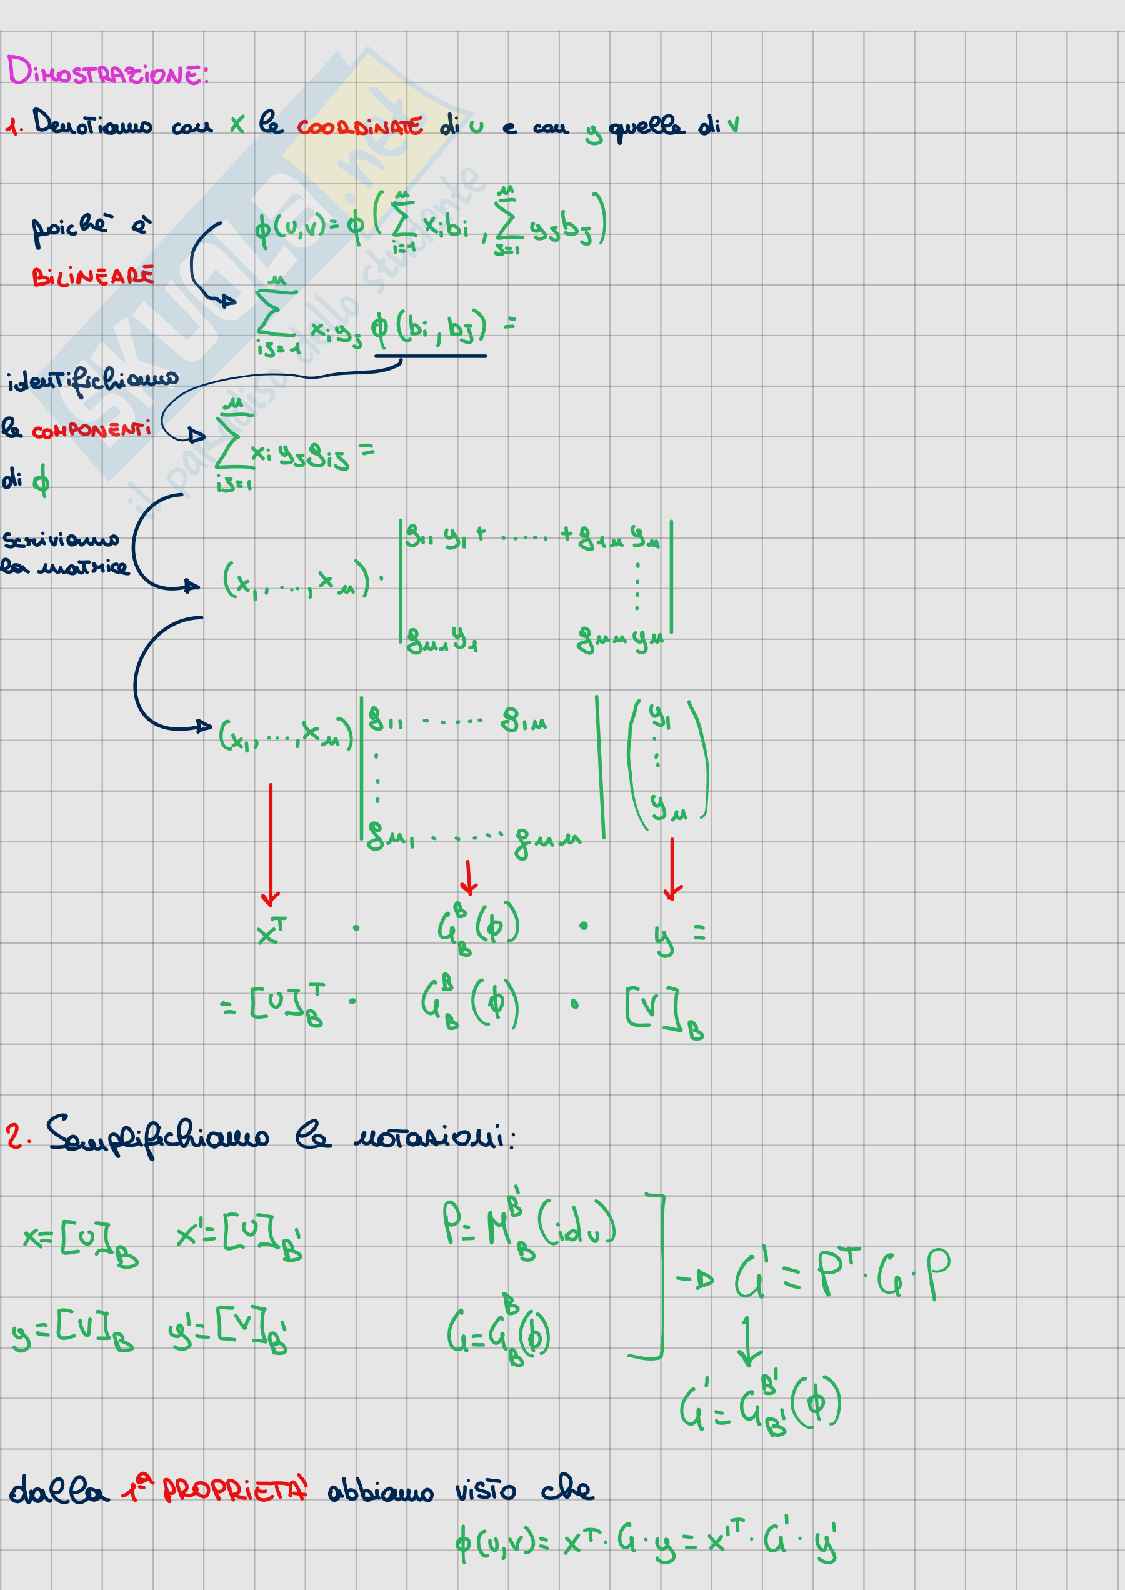 DIMOSTRAZIONE:
1. Denotiamo con x le COORDINATE di u e con y quelle di v
poiché è BILINEARE
ϕ(u,v)=ϕ(∑_{i=1}^{n} x_i b_i , ∑_{j=1}^{n} y_j b_j)
∑_{ij=1}^{n} x_i y_j ϕ(b_i, b_j) =
identifichiamo le COMPONENTI di ϕ
∑_{ij=1}^{n} x_i y_j g_ij =
scriviamo la matrice
(x_1, ..., x_n) · | g_11 y_1 + ..... + g_1n y_n |
⋮
g_n1 y_1 g_nn y_n
(x_1, ..., x_n) | g_11 ..... g_1n | ( y_1
⋮ ⋮
g_n1 ...... g_nn y_n )
x^T · G_B^B(ϕ) · y =
= [u]_B^T · G_B^B(ϕ) · [v]_B
2. Semplifichiamo le notazioni:
x=[u]_B x'=[u]_B' P=M_B^B'(id_v)
→ G' = P^T · G · P
y=[v]_B y'=[v]_B' G=G_B^B(ϕ)
↓
G' = G_B'^B'(ϕ)
dalla 1ª PROPRIETÀ abbiamo visto che
ϕ(u,v) = x^T · G · y = x'^T · G' · y'
SKUOLA.net
il paradiso dello studente